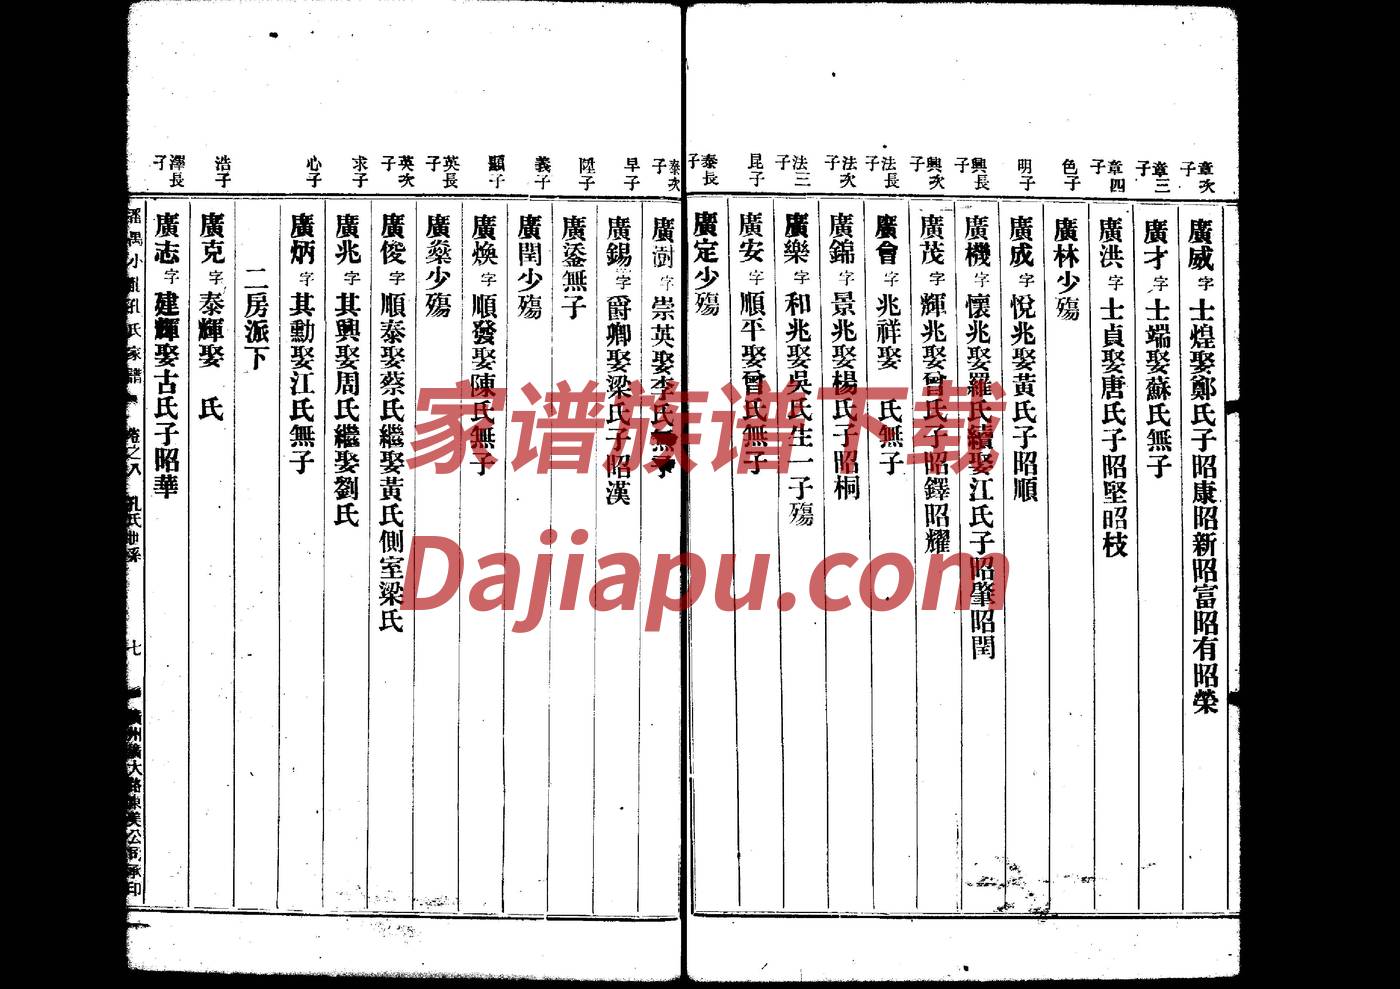 章次子 廣威 字 士煌娶鄭氏子昭康昭新昭富昭有昭榮
章三子 廣才 字 士端娶蘇氏無子
章四子 廣洪 字 士貞娶唐氏子昭堅昭枝
色子 廣林少殤
明子 廣成 字 悅兆娶黃氏子昭順
興長子 廣機 字 懷兆娶羅氏續娶江氏子昭肇昭閏
興次子 廣茂 字 輝兆娶曾氏子昭鐸昭耀
法長子 廣會 字 兆祥娶 氏無子
法次子 廣錦 字 景兆娶楊氏子昭桐
法三子 廣樂 字 和兆娶吳氏生一子殤
昆子 廣安 字 順平娶曾氏無子
泰長子 廣定少殤
泰次子 廣澍 字 崇英娶李氏無子
早子 廣錫 字 爵卿娶梁氏子昭漢
陞子 廣鎏無子
義子 廣閏少殤
顯子 廣煥 字 順發娶陳氏無子
英長子 廣燊少殤
英次子 廣俊 字 順泰娶蔡氏繼娶黃氏側室梁氏
求子 廣兆 字 其興娶周氏繼娶劉氏
心子 廣炳 字 其勳娶江氏無子
二房派下
浩子 廣克 字 泰輝娶 氏
澤長子 廣志 字 建輝娶古氏子昭華
小 孔氏家譜 卷之八 孔氏世系 七 廣州 大路 東美公司承印
家谱族谱下载
Dajiapu.com